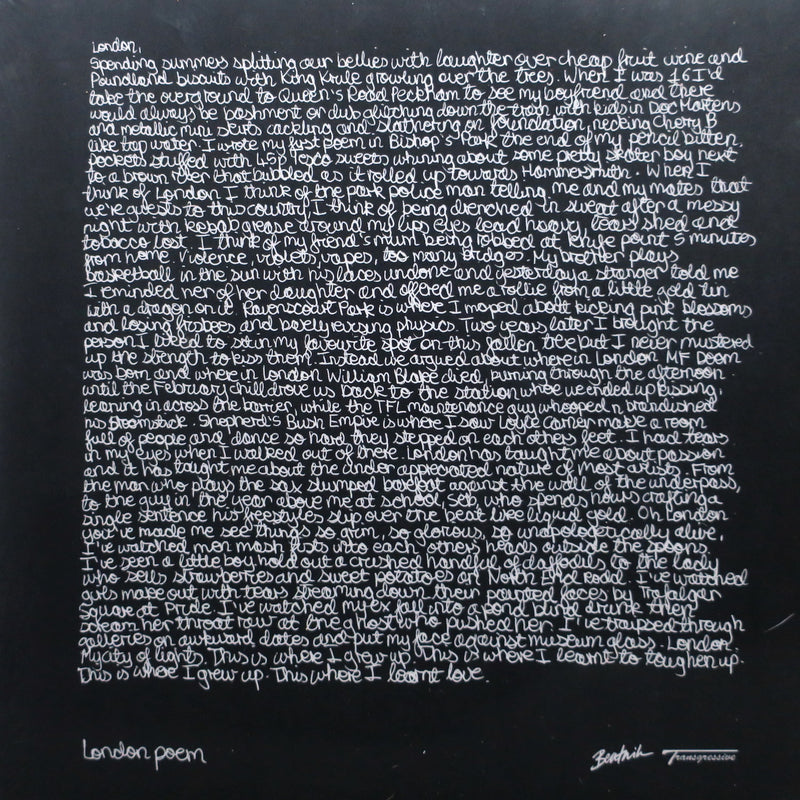 London,
Spending summers splitting our bellies with laughter over cheap fruit wine and
Poundland biscuits with King Krule growling over the trees. When I was 16 I'd
take the overground to Queen's Road Peckham to see my boyfriend and there
would always be bashment or dub glitching down the trash with kids in Doc Martens
and metallic mini skirts cackling and slathering on foundation, necking Cherry B
like tap water. I wrote my first poem in Bishop's Park the end of my pencil bitten,
pockets stuffed with 45p Tesco sweets whining about some pretty skater boy next
to a brown river that bubbled as it rolled up towards Hammersmith. When I
think of London I think of the park police man telling me and my mates that
we're guests to this country, I think of being drenched in sweat after a messy
night with kebab grease around my lips eyes lead heavy, tears shed and
tobacco lost. I think of my friend's mum being robbed at knife point 5 minutes
from home. Violence, violets, vapes, too many bridges. My brother plays
basketball in the sun with his laces undone and yesterday a stranger told me
I reminded her of her daughter and offered me a rollie from a little gold tin
with a dragon on it. Ravenscourt Park is where I moped about kicking pink blossoms
and losing frisbees and barely revising physics. Two years later I brought the
person I liked to sit in my favourite spot on this fallen tree but I never mustered
up the strength to kiss them. Instead we argued about where in London MF Doom
was born and where in London William Blake died, running through the afternoon
until the February chill drove us back to the station where we ended up kissing
leaning in across the barrier, while the TFL maintenance guy whooped n brandished
his broomstick. Shepherd's Bush Empire is where I saw Loyle Carner make a room
full of people and dance so hard they stepped on each others feet. I had tears
in my eyes when I walked out of there. London has taught me about passion
and it has taught me about the under appreciated nature of most artists. From
the man who plays the sax slumped barefoot against the wall of the underpass,
to the guy in the year above me at school, Seb, who spends hours crafting a
single sentence his freestyles slip over the beat like liquid gold. Oh London
you've made me see things so grim, so glorious, so unapologetically alive,
I've watched men mash fists into each others heads outside the spoons
I've seen a little boy hold out a crushed handful of daffodils to the lady
who sells strawberries and sweet potatoes on North End Road. I've watched
girls make out with tears streaming down their painted faces by Trafalgar
Square at Pride. I've watched my ex fall into a pond blind drunk then
scream her throat raw at the ghost who pushed her. I've traipsed through
galleries on awkward dates and put my face against museum glass. London.
My city of lights. This is where I grew up. This is where I learnt to toughen up.
This is where I grew up. This where I learnt love.
London poem
Beatnik Transgressive